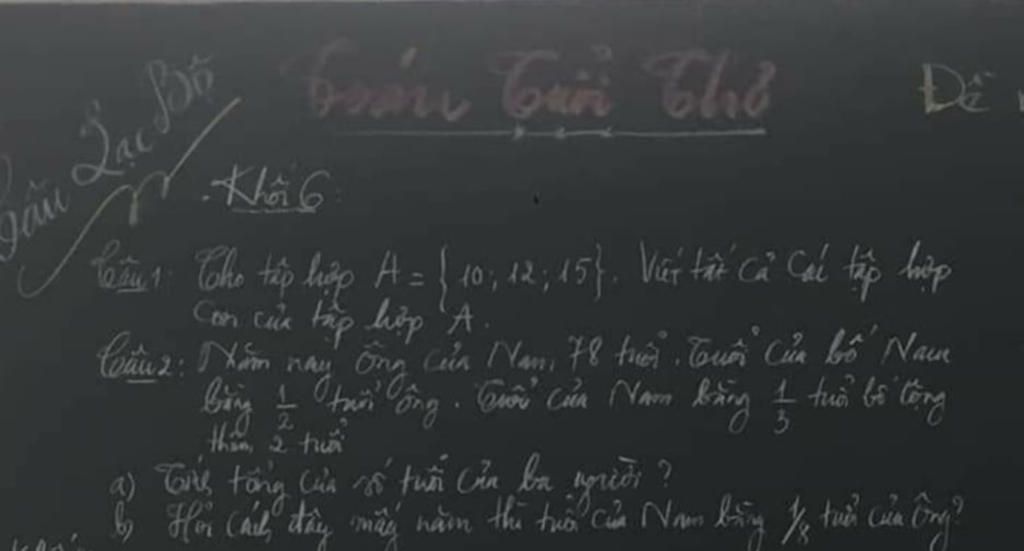 Câu Lạc Bộ
Toán Tuổi Thơ
Đề
Khối 6:
Câu 1: Cho tập hợp A = {10; 12; 15}. Viết tất cả các tập hợp
con của tập hợp A.
Câu 2: Năm nay ông của Nam 78 tuổi. Tuổi của bố Nam
bằng 1/2 tuổi ông. Tuổi của Nam bằng 1/3 tuổi bố cộng
thêm 2 tuổi
a) Tính tổng của số tuổi của ba người?
b) Hỏi cách đây mấy năm thì tuổi của Nam bằng 1/8 tuổi của ông?